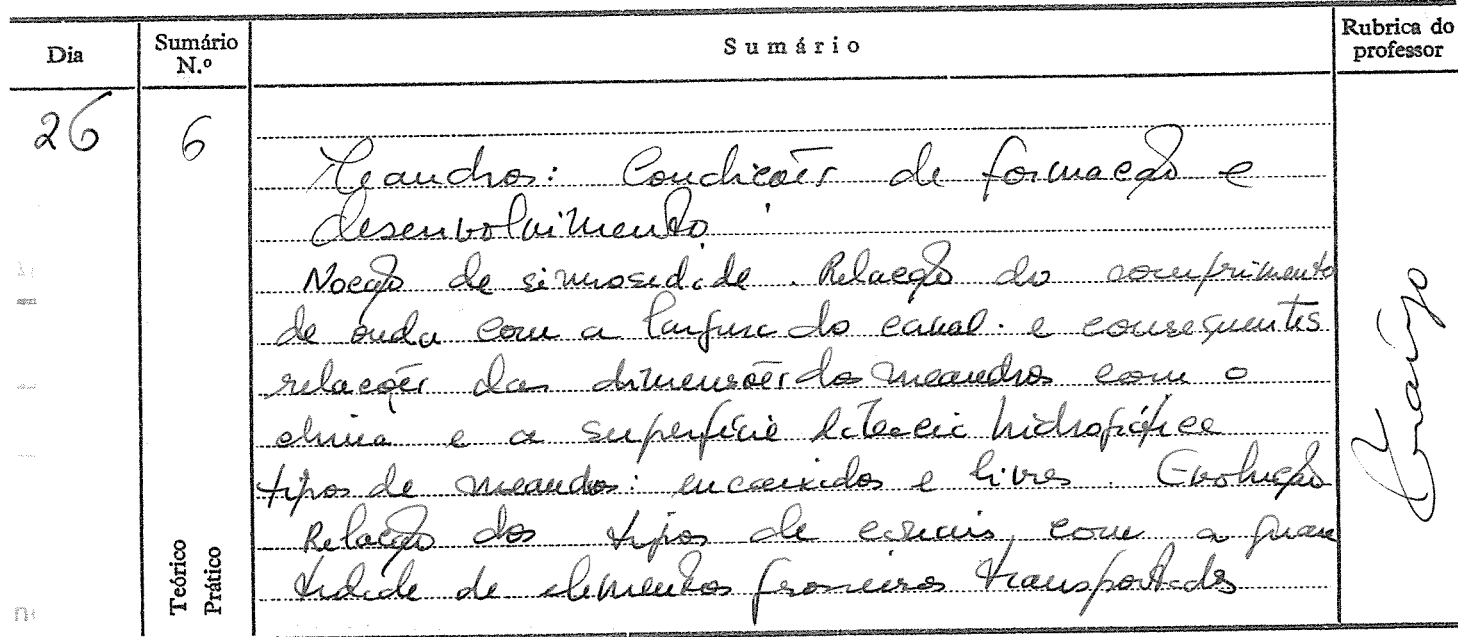 Dia
Sumário N.º
Sumário
Rubrica do professor
26
6
Meandros: Condições de formação e
desenvolvimento.
Noção de sinuosidade. Relação do comprimento
de onda com a largura do canal. e consequentes
relações das dimensões dos meandros com o
clima e a superfície da bacia hidrográfica
tipos de meandros: encaixados e livres. Evolução
Relação dos tipos de canais, com a quan
tidade de elementos grosseiros transportados
Teórico
Prático